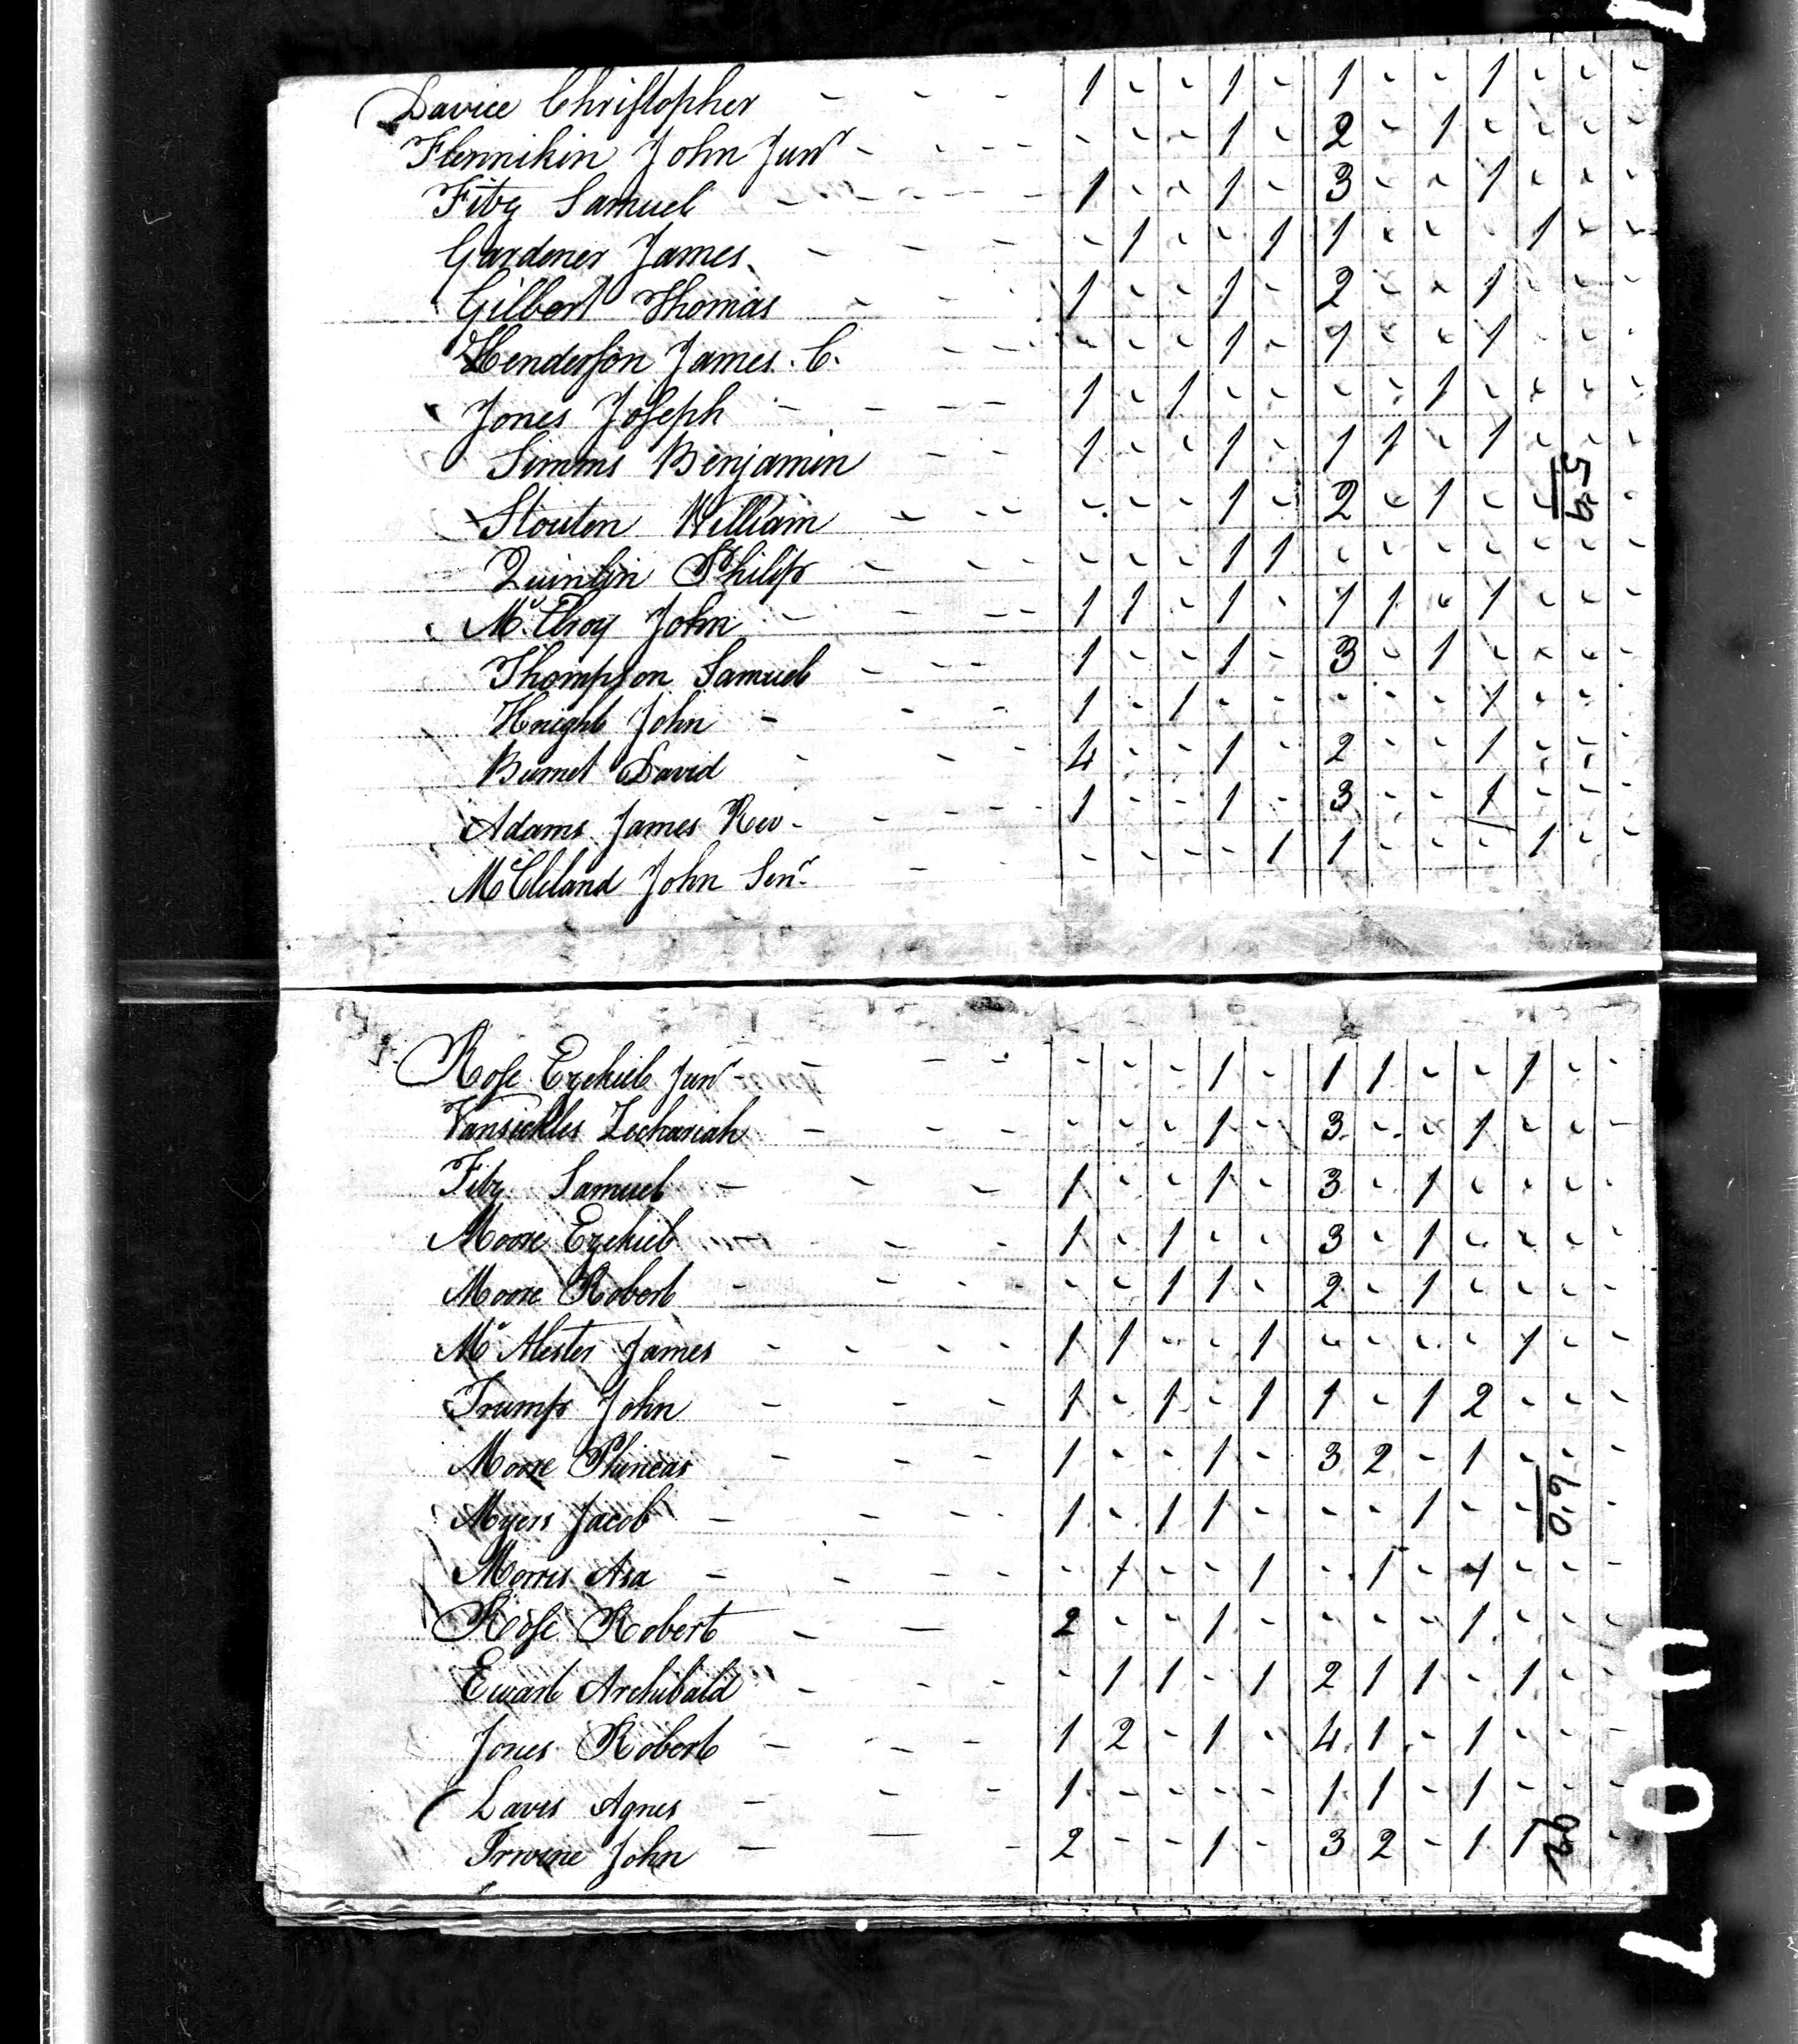 Davice Christopher - - - 1 - - 1 - 1 - - 1 - - -
Flennikin John Junr - - - - - - 1 - 2 - 1 - - - -
Fitz Samuel - - - - 1 - - 1 - 3 - - 1 - - -
Gardener James - - - - 1 - - 1 1 - - - 1 - -
Gilbert Thomas - - - 1 - - 1 - 2 - - 1 - - -
Henderson James. C. - - - - - - 1 - 1 - - 1 - - -
Jones Joseph - - - - 1 - 1 - - - - 1 - - - -
Simms Benjamin - - 1 - - 1 - 1 1 - 1 - - -
Stouten William - - - - - - 1 - 2 - 1 - - -
59
Quinlin Philip - - - - - - - 1 1 - - - - - - -
McElroy John - - - - 1 1 - 1 - 1 1 - 1 - - -
Thompson Samuel - - - 1 - - 1 - 3 - 1 - - - -
Knight John - - - 1 - 1 - - - - - 1 - - -
Burnet David - - - 4 - - 1 - 2 - - 1 - - -
Adams James Rev - - - - - 1 - - 1 - 3 - - 1 - - -
McCleland John Senr - - - - - - 1 1 - - - 1 - -
Rose Ezekiel Junr - - - - - - 1 - 1 1 - - 1 - -
Vansickles Zechariah - - - - - - 1 - 3 - - 1 - - -
Fitz Samuel - - - 1 - - 1 - 3 - 1 - - - -
Moore Ezekiel - - - 1 - 1 - - 3 - 1 - - - -
Moore Robert - - - - - - 1 1 - 2 - 1 - - - -
McAlester James - - - - 1 1 - - 1 - - - - 1 - -
Trump John - - - 1 - 1 - 1 1 - 1 2 - - -
Moore Phineas - - - 1 - - 1 - 3 2 - 1 - - -
Myers Jacob - - - - 1 - 1 1 - - - 1 - - -
60
Morris Asa - - - - - 1 - - 1 - 1 - 1 - - -
Rose Robert - - 2 - - 1 - - - - 1 - - -
Ewart Archibald - - - - 1 1 - 1 2 1 1 - 1 - -
Jones Robert - - - 1 2 - 1 - 4 1 - 1 - - -
Davis Agnes - - - 1 - - - - 1 1 - 1 - - -
Irwine John - - - 2 - - 1 - 3 2 - 1 1 -
92